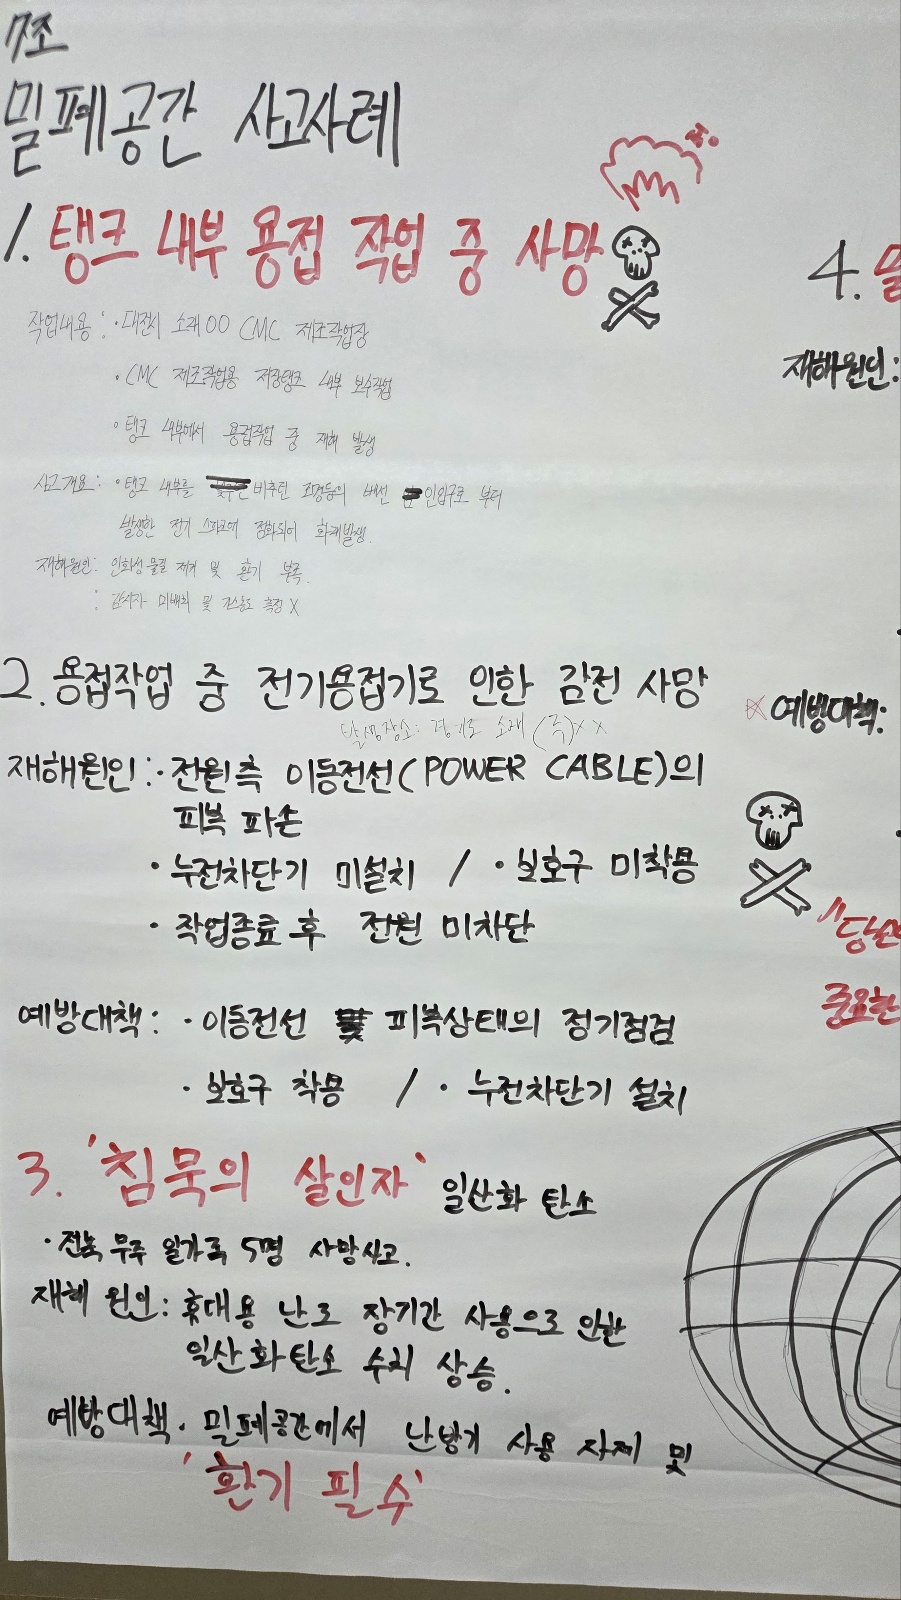 7조
밀폐공간 사고사례
1. 탱크 내부 용접 작업 중 사망
작업내용 : · 대전시 소재 OO CMC 제조작업장
· CMC 제조작업용 저장탱크 내부 보수작업
· 탱크 내부에서 용접작업 중 재해 발생
사고개요 : · 탱크 내부를 비추던 조명등의 배선 인입구로 부터
발생한 전기 스파크에 점화되어 화재발생.
재해원인 : 인화성물질 제거 및 환기 부족.
: 감시자 미배치 및 가스농도 측정 X
2. 용접작업 중 전기용접기로 인한 감전 사망
발생장소 : 경기도 소재 (주)XX
재해원인 : · 전원측 이동전선(POWER CABLE)의
피복 파손
· 누전차단기 미설치 / · 보호구 미착용
· 작업종료 후 전원 미차단
예방대책 : · 이동전선 피복상태의 정기점검
· 보호구 착용 / · 누전차단기 설치
3. '침묵의 살인자' 일산화 탄소
· 전북 무주 일가족 5명 사망사고.
재해 원인 : 휴대용 난로 장기간 사용으로 인한
일산화탄소 수치 상승.
예방대책 · 밀폐공간에서 난방기 사용 자제 및
'환기 필수'
4. 밀
재해원인 :
예방대책 :
중요한